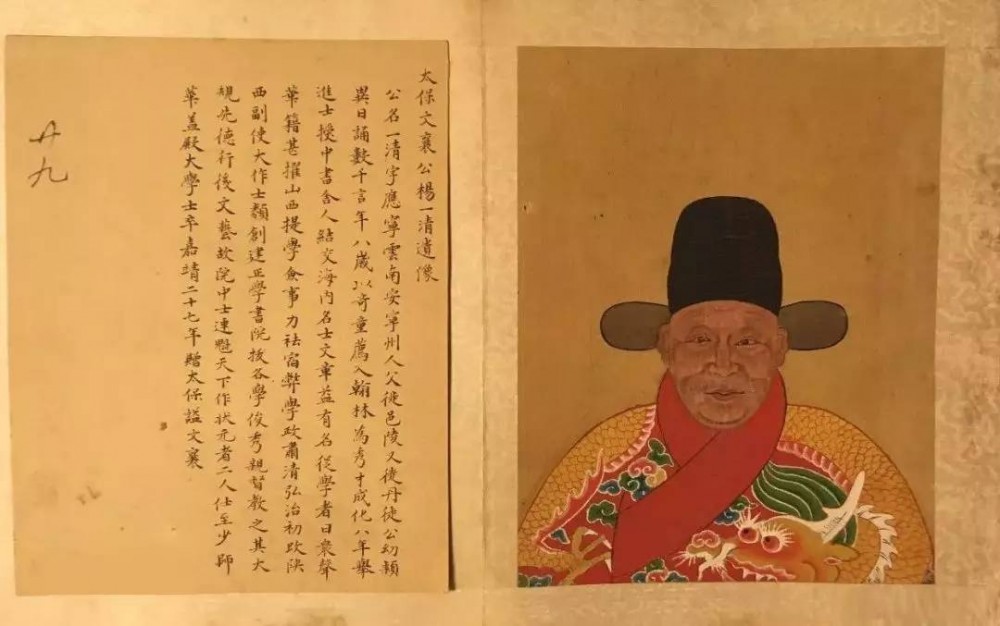 太保文襄公楊一清遺像
公名一清字應寧雲南安寧州人父徙邑陵又徙丹徒公幼穎
異日誦數千言年八歲以奇童薦入翰林為秀才成化八年舉
進士授中書舍人結交海內名士文章益有名從學者日衆聲
華籍甚擢山西提學僉事力袪宿弊學政肅清弘治初改陝
西副使大作士類創建正學書院拔各學俊秀親督教之其大
規先德行後文藝故院中士連魁天下作狀元者二人仕至少師
華盖殿大學士卒嘉靖二十七年贈太保謚文襄
卅九